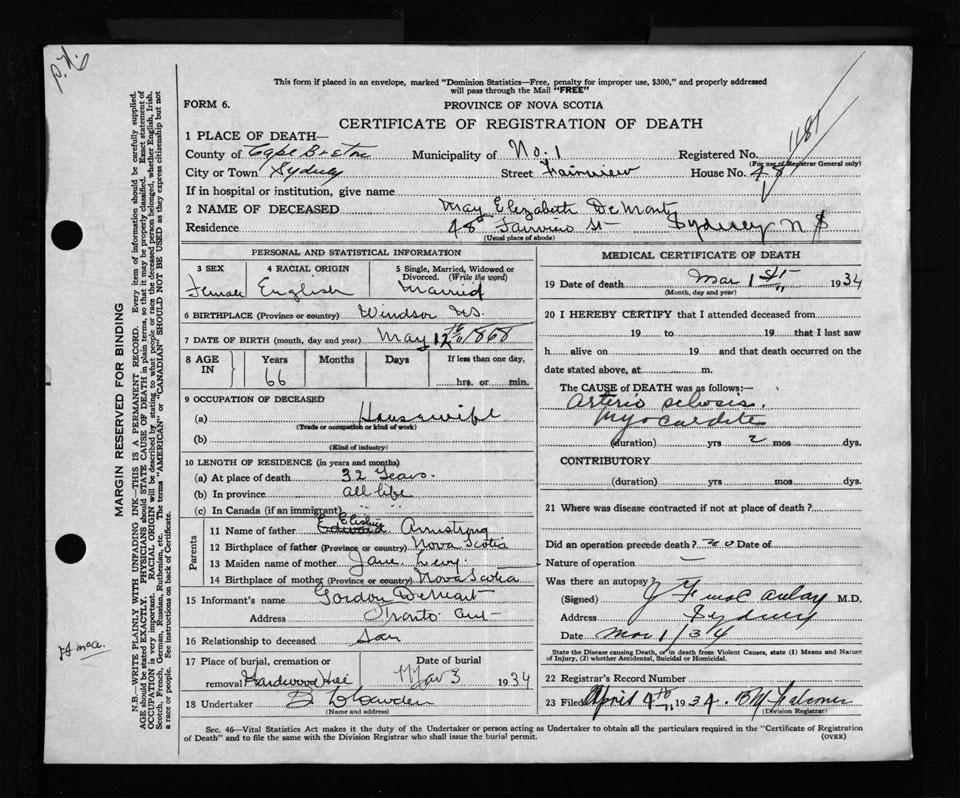 P.N.
This form if placed in an envelope, marked "Dominion Statistics—Free, penalty for improper use, $300," and properly addressed
will pass through the Mail "FREE"
FORM 6.
PROVINCE OF NOVA SCOTIA
CERTIFICATE OF REGISTRATION OF DEATH
1 PLACE OF DEATH—
1181
County of Cape Breton Municipality of No. 1 Registered No.
(For use of Registrar General only)
City or Town Sydney Street Fairview House No. 48
If in hospital or institution, give name
2 NAME OF DECEASED May Elizabeth DeMont
Residence 48 Fairview St Sydney N S
(Usual place of abode)
PERSONAL AND STATISTICAL INFORMATION
3 SEX Female
4 RACIAL ORIGIN English
5 Single, Married, Widowed or Divorced. (Write the word) Married
6 BIRTHPLACE (Province or country) Windsor NS.
7 DATE OF BIRTH (month, day and year) May 12th 1868
8 AGE IN Years 66 Months Days If less than one day, hrs. or min.
9 OCCUPATION OF DECEASED
(a) Housewife
(Trade or occupation or kind of work)
(b)
(Kind of industry)
10 LENGTH OF RESIDENCE (in years and months)
(a) At place of death 32 Years.
(b) In province all life
(c) In Canada (if an immigrant)
Parents
11 Name of father Edward Elisha Armstrong
12 Birthplace of father (Province or country) Nova Scotia
13 Maiden name of mother Jane Levy
14 Birthplace of mother (Province or country) Nova Scotia
15 Informant's name Gordon DeMont
Address Toronto Ont
16 Relationship to deceased Son
17 Place of burial, cremation or removal Hardwood Hill
Date of burial Mar 3 1934
18 Undertaker
(Name and address)
MEDICAL CERTIFICATE OF DEATH
19 Date of death Mar 1st 1934
(Month, day and year)
20 I HEREBY CERTIFY that I attended deceased from
19 to 19 that I last saw
h alive on 19 and that death occurred on the
date stated above, at m.
The CAUSE of DEATH was as follows:—
Arterio sclosis.
Myocardites
(duration) yrs 2 mos dys.
CONTRIBUTORY
(duration) yrs. mos. dys.
21 Where was disease contracted if not at place of death?
Did an operation precede death? no Date of
Nature of operation
Was there an autopsy?
(Signed) J F MacAulay M.D.
Address Sydney
Date Mar 1/34
State the Disease causing Death, or in death from Violent Causes, state (1) Means and Nature
of Injury, (2) whether Accidental, Suicidal or Homicidal.
22 Registrar's Record Number
23 Filed April 4th 1934.
(Division Registrar)
Sec. 46—Vital Statistics Act makes it the duty of the Undertaker or person acting as Undertaker to obtain all the particulars required in the "Certificate of Registration
of Death" and to file the same with the Division Registrar who shall issue the burial permit.
(OVER)
MARGIN RESERVED FOR BINDING
N.B.—WRITE PLAINLY WITH UNFADING INK—THIS IS A PERMANENT RECORD. Every item of information should be carefully supplied.
AGE should be stated EXACTLY. PHYSICIANS should STATE CAUSE OF DEATH in plain terms, so that it may be properly classified. Exact statement of
OCCUPATION is very important. RACIAL ORIGIN will be described by stating to what people or race the deceased person belonged, whether English, Irish,
Scotch, French, German, Russian, Ruthenian, etc. The terms "AMERICAN" or "CANADIAN" SHOULD NOT BE USED as they express citizenship but not
a race or people. See instructions on back of Certificate.